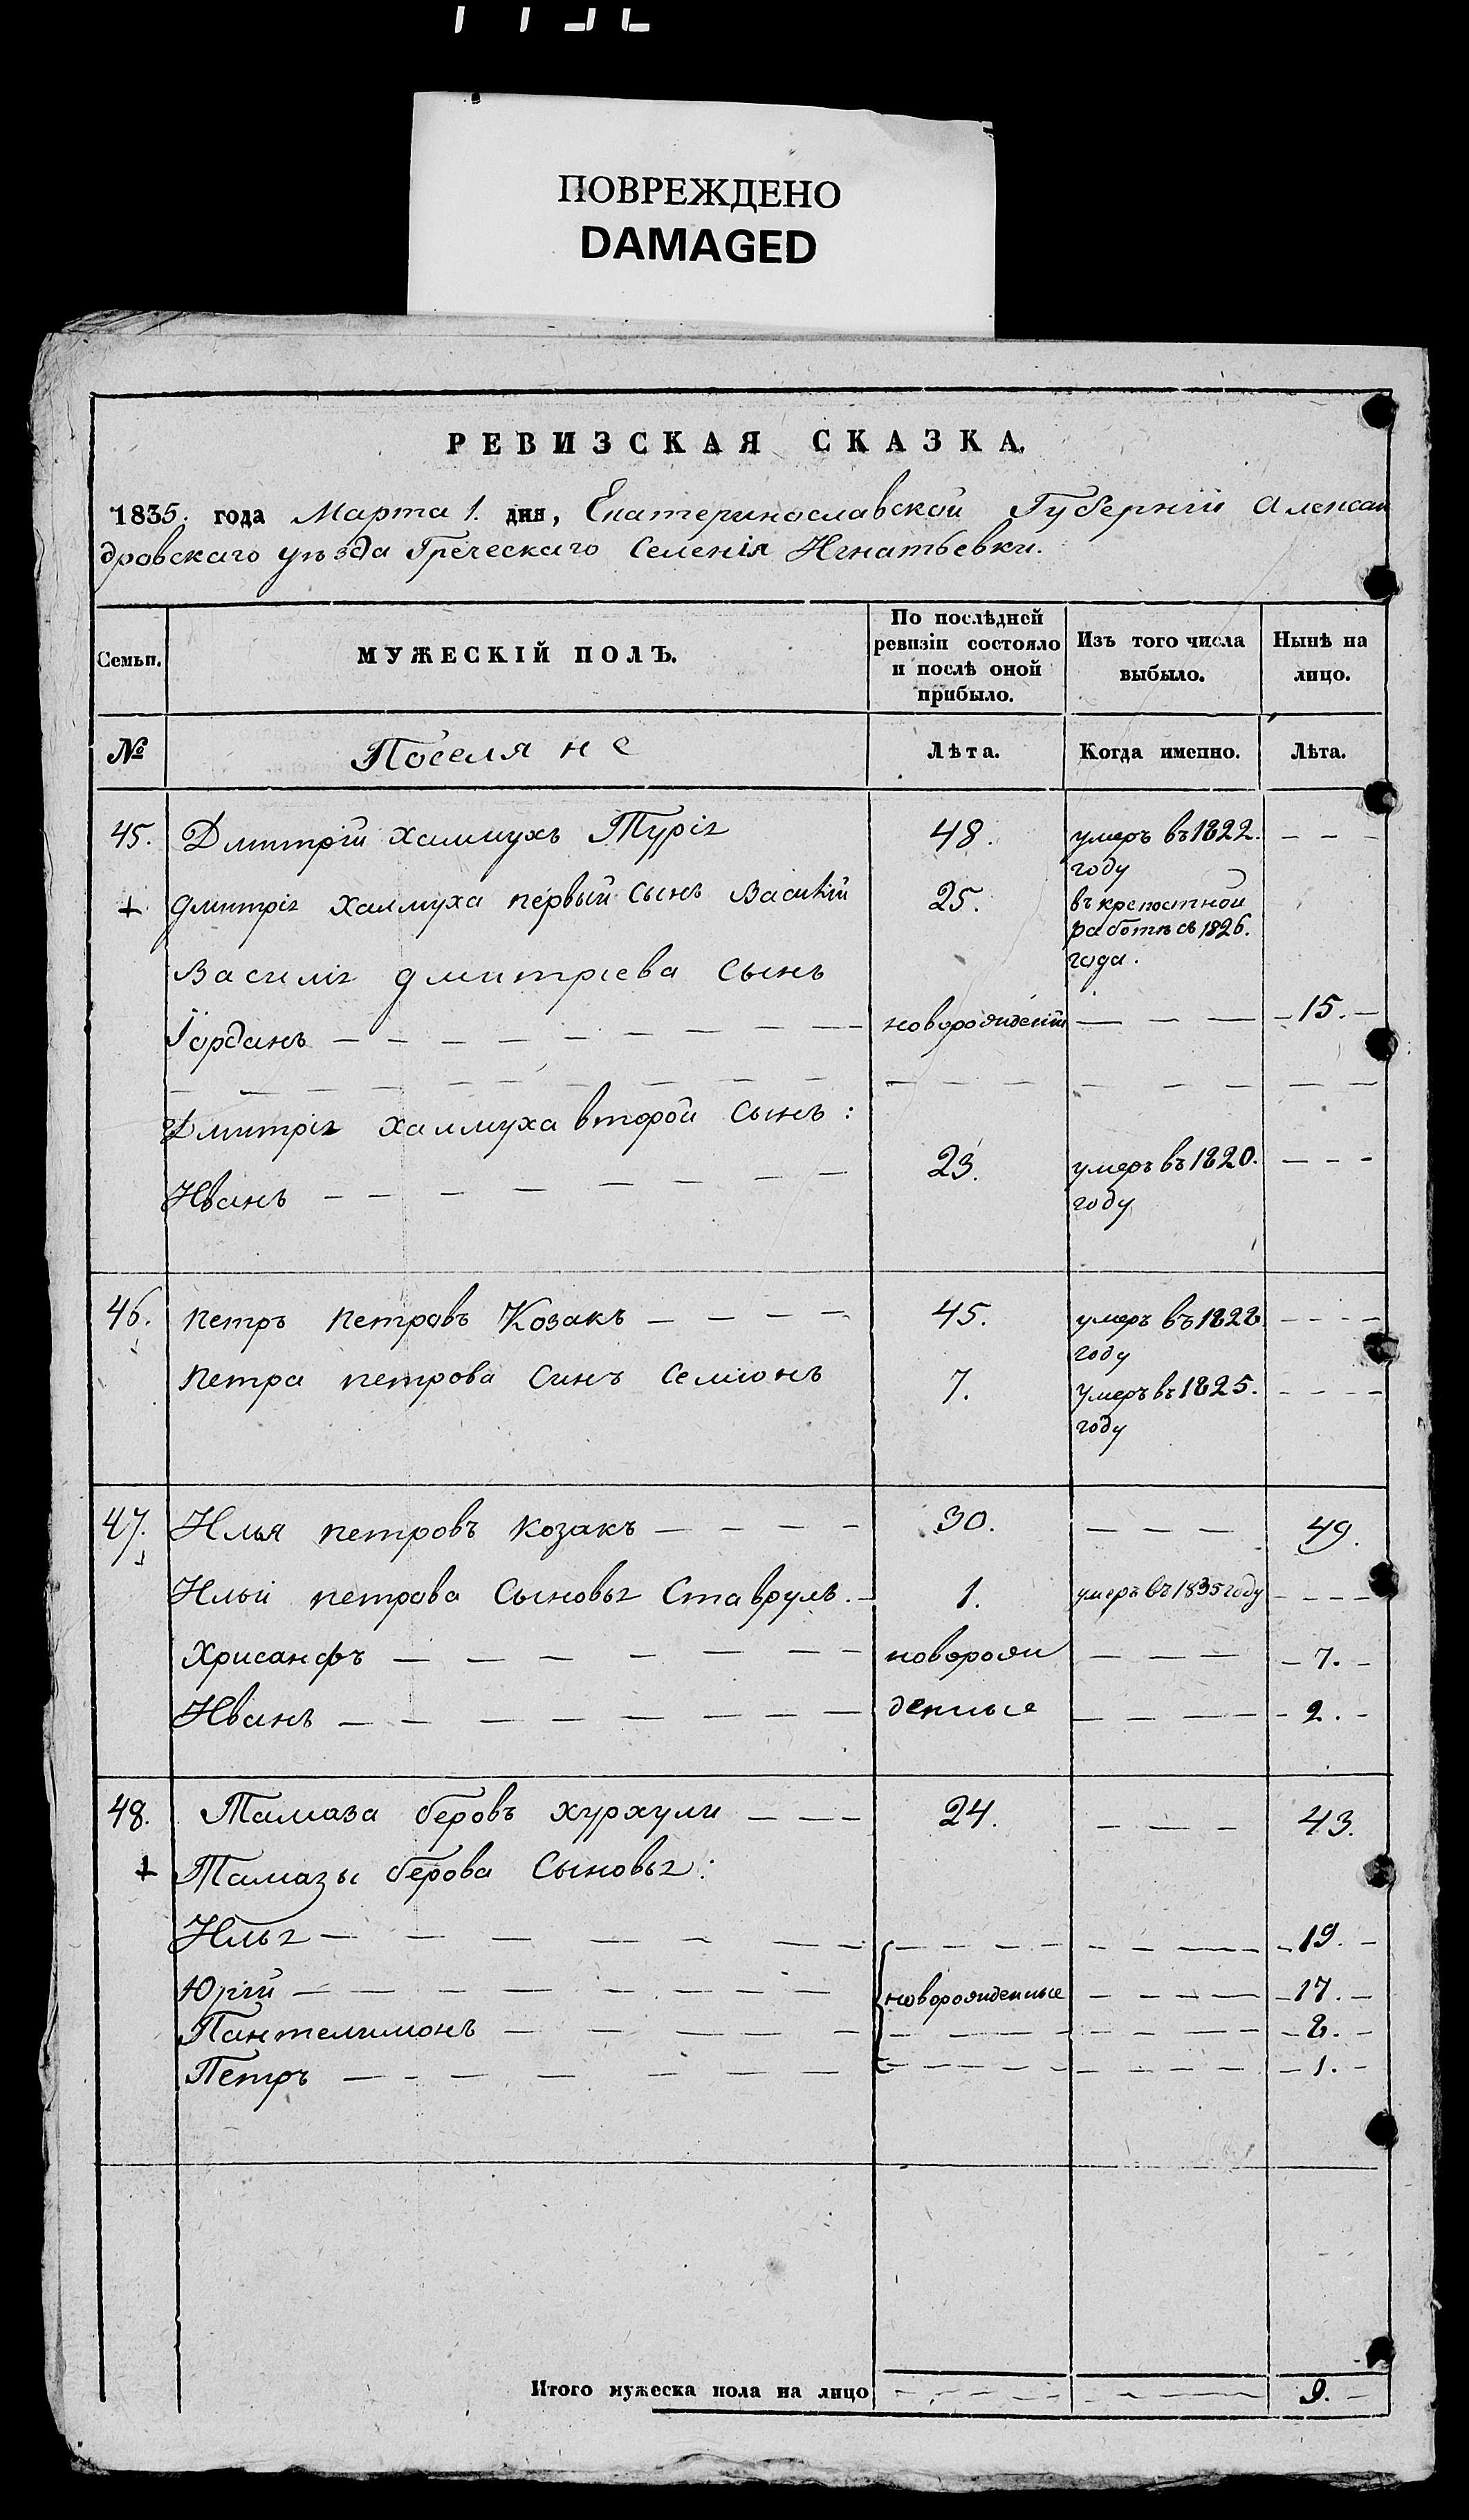 ПОВРЕЖДЕНО
DAMAGED
РЕВИЗСКАЯ СКАЗКА.
1835. года Марта 1. дня, Екатеринославской Губерніи Алексан
дровскаго уѣзда Греческаго Селенія Игнатьевки.
Семьи. МУЖЕСКІЙ ПОЛЪ. По послѣдней ревизіи состояло и послѣ оной прибыло. Изъ того числа выбыло. Нынѣ на лицо.
№ Поселяне Лѣта. Когда именно. Лѣта.
45. Дмитрій халмухъ Туріг 48. умеръ въ 1822. году
+ дмитріг халмуха первый сынъ Василій 25. въ крепостной работѣ съ 1826. года.
Василіг дмитріева сынъ
Іорданъ новорожденій 15.
Дмитріг халмуха второй сынъ:
Иванъ 23. умеръ въ 1820. году
46. петръ петровъ Козакъ 45. умеръ въ 1828 году
петра петрова синъ Семіонъ 7. умеръ въ 1825. году
47. Илья петровъ козакъ 30. 49.
Ильи петрова Сыновьг Ставруль. 1. умеръ въ 1835 году
Хрисанфъ новорож 7.
Иванъ денные 2.
48. Тамаза беровъ хурхули 24. 43.
+ Тамазы берова Сыновьг:
Ильг 19.
Юрій новорожденные 17.
Пантелимонъ 8.
Петръ 1.
Итого мужеска пола на лицо 9.